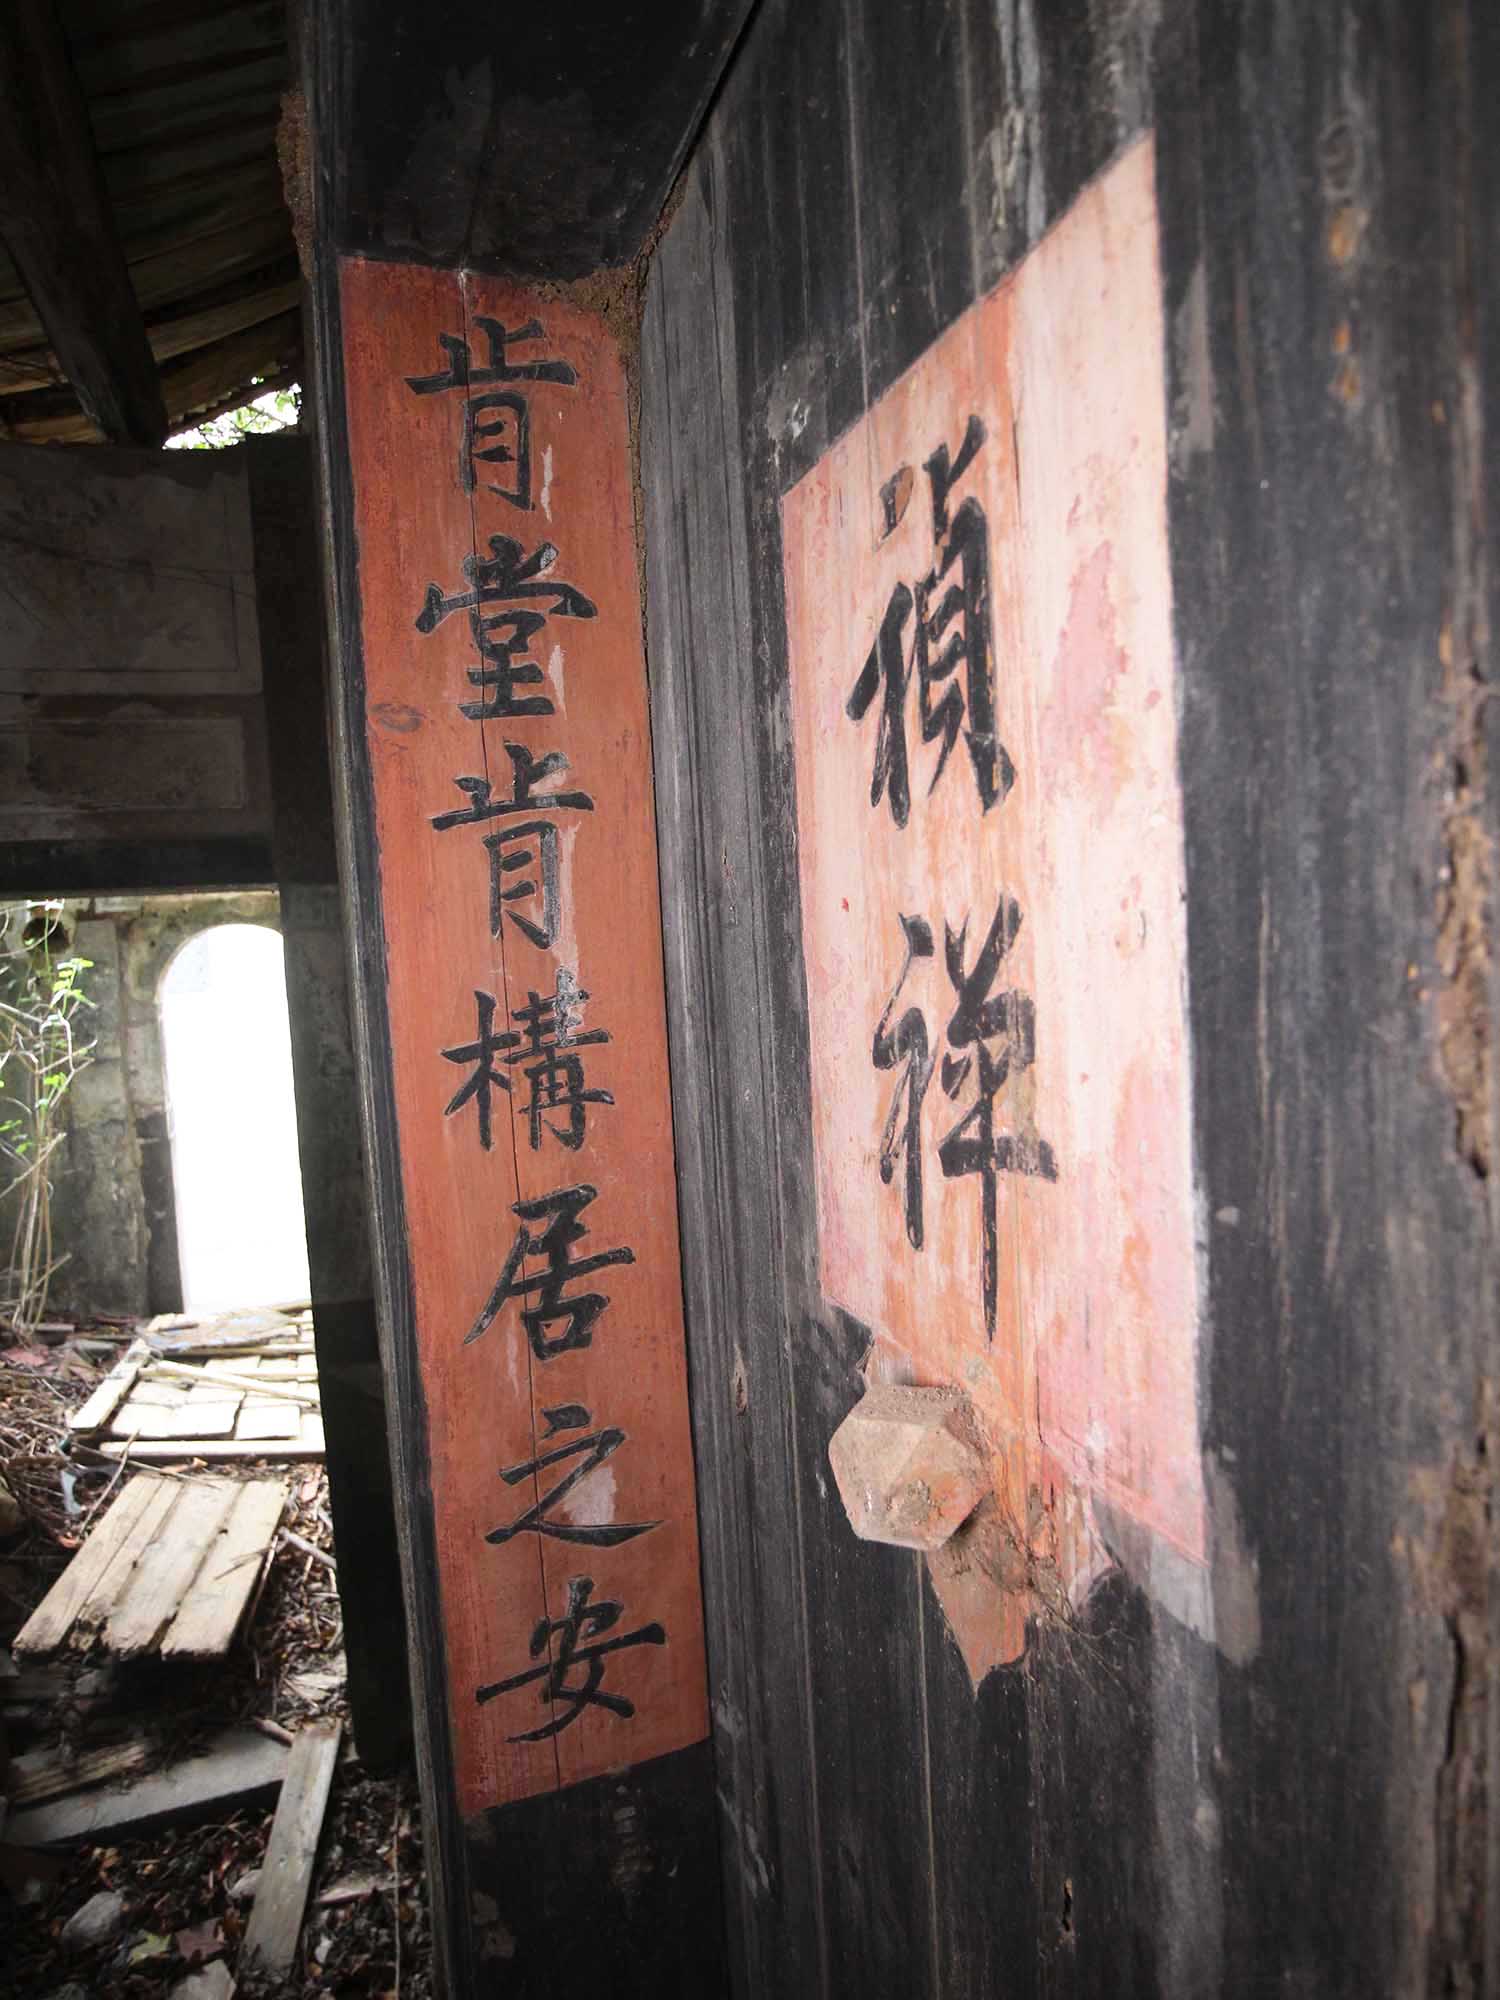 禎祥
肯堂肯構居之安